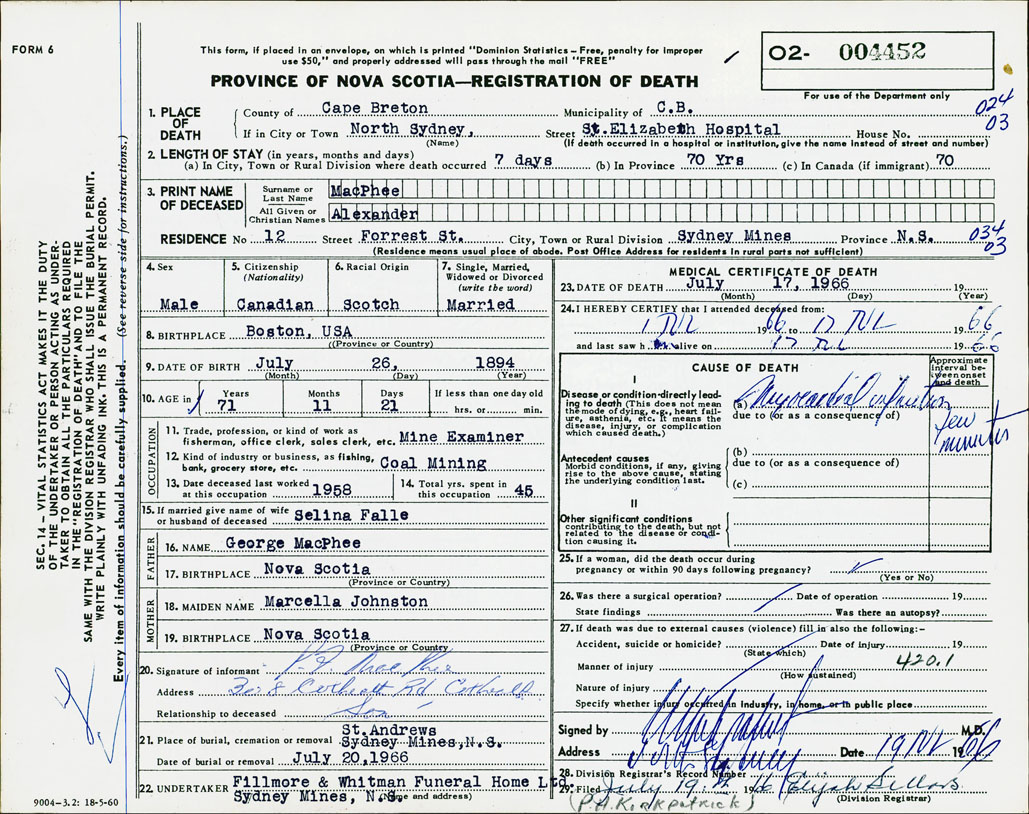 FORM 6
This form, if placed in an envelope, on which is printed "Dominion Statistics – Free, penalty for improper
use $50," and properly addressed will pass through the mail "FREE"
PROVINCE OF NOVA SCOTIA—REGISTRATION OF DEATH
02- 004452
For use of the Department only
024
03
1. PLACE OF DEATH
County of Cape Breton Municipality of C.B.
If in City or Town North Sydney, Street St.Elizabeth Hospital House No.
(Name) (If death occurred in a hospital or institution, give the name instead of street and number)
2. LENGTH OF STAY (in years, months and days)
(a) In City, Town or Rural Division where death occurred 7 days (b) In Province 70 Yrs (c) In Canada (if immigrant) 70
3. PRINT NAME OF DECEASED
Surname or Last Name MacPhee
All Given or Christian Names Alexander
RESIDENCE No 12 Street Forrest St. City, Town or Rural Division Sydney Mines Province N.S.
034
03
(Residence means usual place of abode. Post Office Address for residents in rural parts not sufficient)
4. Sex
Male
5. Citizenship
(Nationality)
Canadian
6. Racial Origin
Scotch
7. Single, Married, Widowed or Divorced
(write the word)
Married
8. BIRTHPLACE Boston, USA
(Province or Country)
9. DATE OF BIRTH July 26, 1894
(Month) (Day) (Year)
10. AGE in Years Months Days If less than one day old
71 11 21 hrs. or min.
OCCUPATION
11. Trade, profession, or kind of work as
fisherman, office clerk, sales clerk, etc. Mine Examiner
12. Kind of industry or business, as fishing,
bank, grocery store, etc. Coal Mining
13. Date deceased last worked
at this occupation 1958
14. Total yrs. spent in
this occupation 45
15. If married give name of wife
or husband of deceased Selina Falle
FATHER
16. NAME George MacPhee
17. BIRTHPLACE Nova Scotia
(Province or Country)
MOTHER
18. MAIDEN NAME Marcella Johnston
19. BIRTHPLACE Nova Scotia
(Province or Country)
20. Signature of informant
Address
Relationship to deceased Son
21. Place of burial, cremation or removal St.Andrews
Sydney Mines,N.S.
Date of burial or removal July 20,1966
22. UNDERTAKER Fillmore & Whitman Funeral Home Ltd.
Sydney Mines, N.S.
(Name and address)
MEDICAL CERTIFICATE OF DEATH
23. DATE OF DEATH July 17, 1966 19
(Month) (Day) (Year)
24. I HEREBY CERTIFY that I attended deceased from:
1966 to 17 1966
and last saw h alive on 17 1966
CAUSE OF DEATH
Approximate interval between onset and death
I
Disease or condition directly leading to death (This does not
mean the mode of dying, e.g., heart failure,
asthenia, etc. It means the
disease, injury, or complication
which caused death.)
(a) Myocardial infarction
few minutes
due to (or as a consequence of)
Antecedent causes
Morbid conditions, if any, giving
rise to the above cause, stating
the underlying condition last.
(b)
due to (or as a consequence of)
(c)
II
Other significant conditions
contributing to the death, but not
related to the disease or condition
causing it.
25. If a woman, did the death occur during
pregnancy or within 90 days following pregnancy?
(Yes or No)
26. Was there a surgical operation? Date of operation 19
State findings Was there an autopsy?
27. If death was due to external causes (violence) fill in also the following:–
Accident, suicide or homicide? Date of injury 19
(State which)
Manner of injury 420.1
(How sustained)
Nature of injury
Specify whether injury occurred in industry, in home, or in public place
Signed by M.D.
Address Date 19 1966
28. Division Registrar's Record Number
29. Filed July 19th 1966 Elijah Sellars
(P.A.Kirkpatrick) (Division Registrar)
SEC. 14 – VITAL STATISTICS ACT MAKES IT THE DUTY
OF THE UNDERTAKER OR PERSON ACTING AS UNDER-
TAKER TO OBTAIN ALL THE PARTICULARS REQUIRED
IN THE "REGISTRATION OF DEATH" AND TO FILE THE
SAME WITH THE DIVISION REGISTRAR WHO SHALL ISSUE THE BURIAL PERMIT.
WRITE PLAINLY WITH UNFADING INK. THIS IS A PERMANENT RECORD.
Every item of information should be carefully supplied. (See reverse side for instructions.)
9004-3.2: 18-5-60